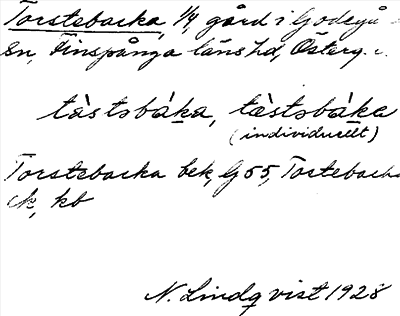 Torstebacka, 1/4 gård i Godegå
sn, Finspånga läns hd, Österg.
tåstsbáka, tæstsbáka
(individuellt)
Torstebacka bek, G 55, Tostebacka
ck, kb
N. Lindqvist 1928